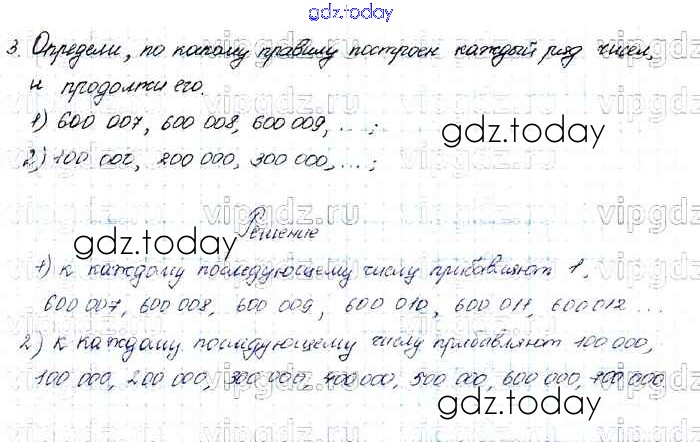 gdz.today
3. Определи, по какому правилу построен каждый ряд чисел,
и продолжи его.
1) 600 007, 600 008, 600 009, ... ;
2) 100 000, 200 000, 300 000, ... ;
gdz.today
Решение
gdz.today
1) к каждому последующему числу прибавляют 1.
600 007, 600 008, 600 009, 600 010, 600 011, 600 012 ...
2) к каждому последующему числу прибавляют 100 000,
100 000, 200 000, 300 000, 400 000, 500 000, 600 000, 700 000
gdz.today